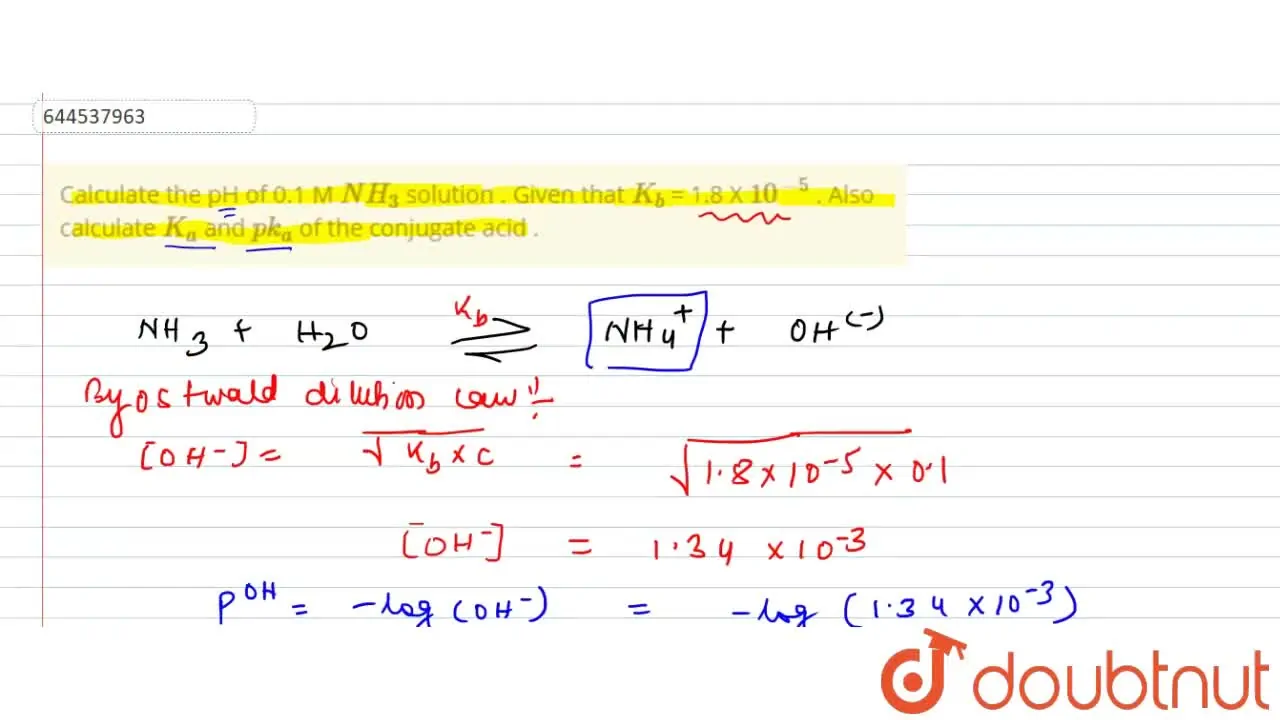 644537963
Calculate the pH of 0.1 M NH₃ solution . Given that K_b = 1.8 X 10⁻⁵ . Also
calculate Kₐ and pkₐ of the conjugate acid .
K_b
NH₃ + H₂O ⇌ NH₄⁺ + OH⁽⁻⁾
By ostwald dilution law :-
[OH-] = √K_b × C = √1.8 × 10⁻⁵ × 0.1
[OH⁻] = 1.34 × 10⁻³
P^OH = -log (OH⁻) = -log (1.34 × 10⁻³)
doubtnut